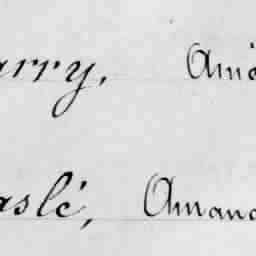 arry, Amé
aslé, Amand